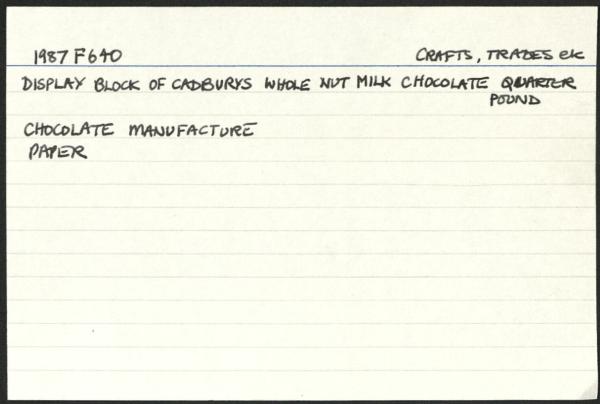 1987 F640 CRAFTS, TRADES etc
DISPLAY BLOCK OF CADBURYS WHOLE NUT MILK CHOCOLATE QUARTER
POUND
CHOCOLATE MANUFACTURE
PAPER